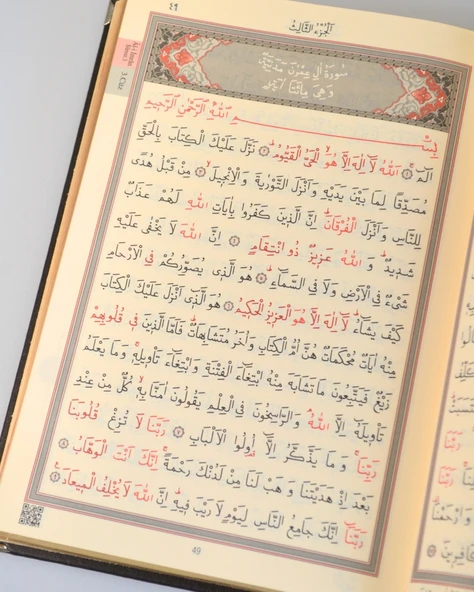 ٤٩
اَلْجُزْءُ الثَّالِثُ
Al-i İmrân Sûresi 3
3. Cüz
سُورَةُ اٰلِ عِمْرٰنَ مَدَنِيَّةٌ
وَهِيَ مِائَتَا اٰيَةٍ
بِسْمِ اللّٰهِ الرَّحْمٰنِ الرَّحِيمِ
الٓمٓ ﴿١﴾ اَللّٰهُ لَٓا اِلٰهَ اِلَّا هُوَ الْحَيُّ الْقَيُّومُ ﴿٢﴾ نَزَّلَ عَلَيْكَ الْكِتَابَ بِالْحَقِّ
مُصَدِّقًا لِمَا بَيْنَ يَدَيْهِ وَاَنْزَلَ التَّوْرٰيةَ وَالْاِنْجِيلَ ﴿٣﴾ مِنْ قَبْلُ هُدًى
لِلنَّاسِ وَاَنْزَلَ الْفُرْقَانَ اِنَّ الَّذِينَ كَفَرُوا بِاٰيَاتِ اللّٰهِ لَهُمْ عَذَابٌ
شَدِيدٌ وَاللّٰهُ عَزِيزٌ ذُو انْتِقَامٍ ﴿٤﴾ اِنَّ اللّٰهَ لَا يَخْفٰى عَلَيْهِ
شَيْءٌ فِي الْاَرْضِ وَلَا فِي السَّمَٓاءِ ﴿٥﴾ هُوَ الَّذِي يُصَوِّرُكُمْ فِي الْاَرْحَامِ
كَيْفَ يَشَٓاءُ لَٓا اِلٰهَ اِلَّا هُوَ الْعَزِيزُ الْحَكِيمُ ﴿٦﴾ هُوَ الَّذِٓي اَنْزَلَ عَلَيْكَ الْكِتَابَ
مِنْهُ اٰيَاتٌ مُحْكَمَاتٌ هُنَّ اُمُّ الْكِتَابِ وَاُخَرُ مُتَشَابِهَاتٌ فَاَمَّا الَّذِينَ فِي قُلُوبِهِمْ
زَيْغٌ فَيَتَّبِعُونَ مَا تَشَابَهَ مِنْهُ ابْتِغَٓاءَ الْفِتْنَةِ وَابْتِغَٓاءَ تَأْوِيلِهِ وَمَا يَعْلَمُ
تَأْوِيلَهُٓ اِلَّا اللّٰهُ وَالرَّاسِخُونَ فِي الْعِلْمِ يَقُولُونَ اٰمَنَّا بِهِ كُلٌّ مِنْ عِنْدِ
رَبِّنَا وَمَا يَذَّكَّرُ اِلَّٓا اُولُوا الْاَلْبَابِ ﴿٧﴾ رَبَّنَا لَا تُزِغْ قُلُوبَنَا
بَعْدَ اِذْ هَدَيْتَنَا وَهَبْ لَنَا مِنْ لَدُنْكَ رَحْمَةً اِنَّكَ اَنْتَ الْوَهَّابُ ﴿٨﴾
رَبَّنَٓا اِنَّكَ جَامِعُ النَّاسِ لِيَوْمٍ لَا رَيْبَ فِيهِ اِنَّ اللّٰهَ لَا يُخْلِفُ الْمِيعَادَ ﴿٩﴾
49